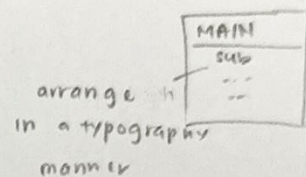 MAIN
sub
arrange
in a typography
manner